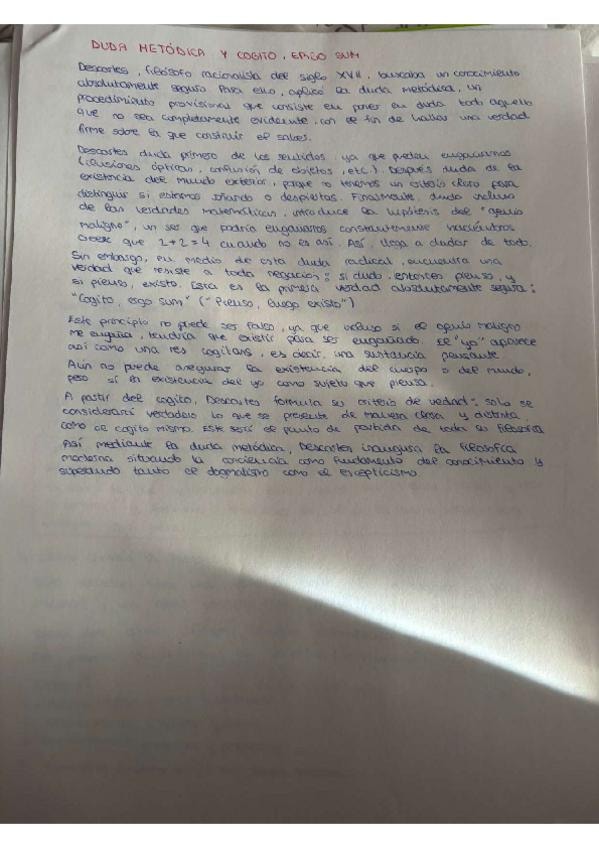 DUDA METÓDICA Y COGITO, ERGO SUM
Descartes, filósofo racionalista del siglo XVII, buscaba un conocimiento
absolutamente seguro. Para ello, aplicó la duda metódica, un
procedimiento provisional que consiste en poner en duda todo aquello
que no sea completamente evidente, con el fin de hallar una verdad
firme sobre la que construir el saber.
Descartes duda primero de los sentidos, ya que pueden engañarnos
(ilusiones ópticas, confusión de objetos, etc.). Después duda de la
existencia del mundo exterior, porque no tenemos un criterio claro para
distinguir si estamos soñando o despiertos. Finalmente, duda incluso
de las verdades matemáticas, introduce la hipótesis del "genio
maligno", un ser que podría engañarnos constantemente haciéndonos
creer que 2+2=4 cuando no es así. Así, llega a dudar de todo.
Sin embargo, en medio de esta duda radical, encuentra una
verdad que resiste a toda negación: si dudo, entonces pienso, y
si pienso, existo. Esta es la primera verdad absolutamente segura:
"Cogito, ergo sum" ("Pienso, luego existo")
Este principio no puede ser falso, ya que incluso si el genio maligno
me engaña, tendría que existir para ser engañado. El "yo" aparece
así como una res cogitans, es decir, una sustancia pensante.
Aún no puede asegurar la existencia del cuerpo o del mundo,
pero sí la existencia del yo como sujeto que piensa.
A partir del cogito, Descartes formula su criterio de verdad: solo se
considerará verdadero lo que se presente de manera clara y distinta,
como el cogito mismo. Este será el punto de partida de toda su filosofía
Así mediante la duda metódica, Descartes inaugura la filosofía
moderna situando la conciencia como fundamento del conocimiento y
superando tanto el dogmatismo como el escepticismo.